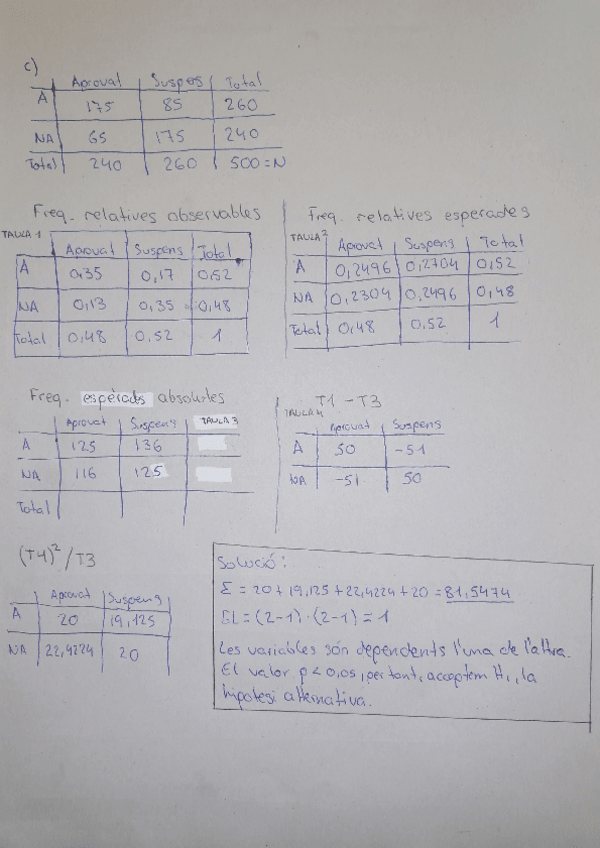 c)
Aprovat Suspès Total
A 175 85 260
NA 65 175 240
Total 240 260 500=N
Freq. relatives observables
TAULA 1
Aprovat Suspens Total
A 0,35 0,17 0,52
NA 0,13 0,35 0,48
Total 0,48 0,52 1
Freq. relatives esperades
TAULA 2
Aprovat Suspens Total
A 0,2496 0,2704 0,52
NA 0,2304 0,2496 0,48
Total 0,48 0,52 1
Freq. esperads absolutes
Aprovat Suspens TAULA 3
A 125 136
NA 116 125
Total
T1-T3
TAULA 4
Aprovat Suspens
A 50 -51
NA -51 50
(T4)²/T3
Aprovat Suspens
A 20 19,125
NA 22,4224 20
Solució:
Σ = 20+19,125+22,4224+20=81,5474
GL=(2-1)·(2-1)=1
Les variables són dependents l'una de l'altra.
El valor p<0,05, per tant, acceptem H₁, la
hipotesi alternativa.